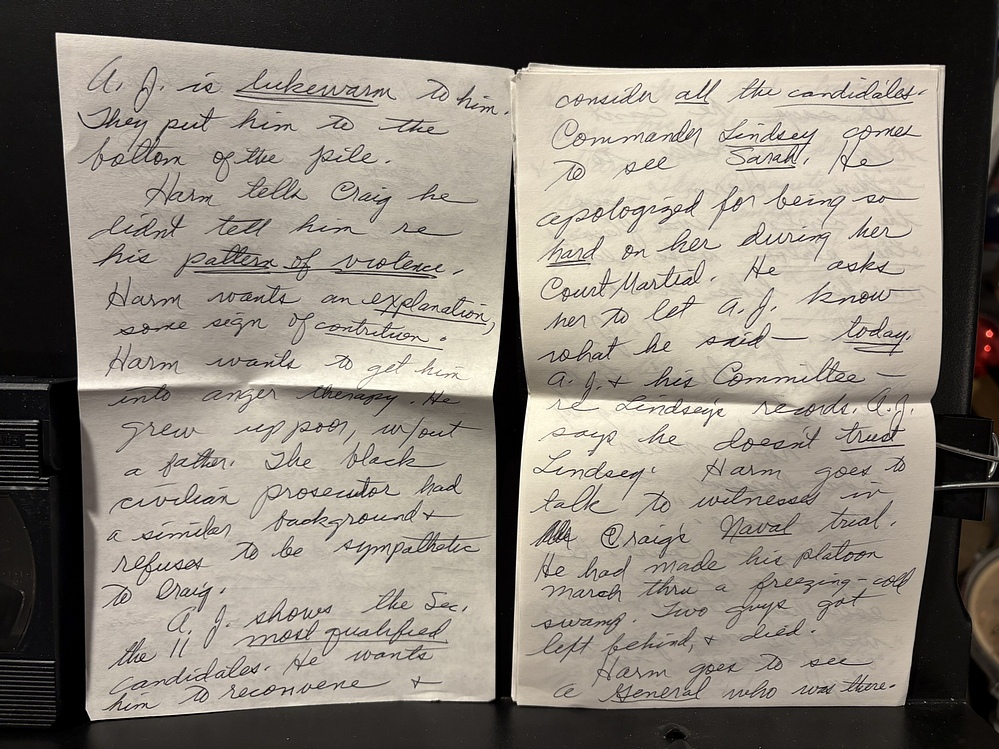 A. J. is lukewarm to him.
They put him to the
bottom of the pile.
Harm tells Craig he
didn't tell him re
his pattern of violence.
Harm wants an explanation,
some sign of contrition.
Harm wants to get him
into anger therapy. He
grew up poor, w/out
a father. The black
civilian prosecutor had
a similar background +
refuses to be sympathetic
to Craig.
A. J. shows the Sec.
the 11 most qualified
candidates. He wants
him to reconvene +
consider all the candidates.
Commander Lindsey comes
to see Sarah. He
apologized for being so
hard on her during her
Court Martial. He asks
her to let A. J. know
what he said — today.
A. J. + his Committee —
re Lindsey's records. A. J.
says he doesn't trust
Lindsey. Harm goes to
talk to witnesses in
Craig's Naval trial.
He had made his platoon
march thru a freezing-cold
swamp. Two guys got
left behind, + died.
Harm goes to see
a General who was there.